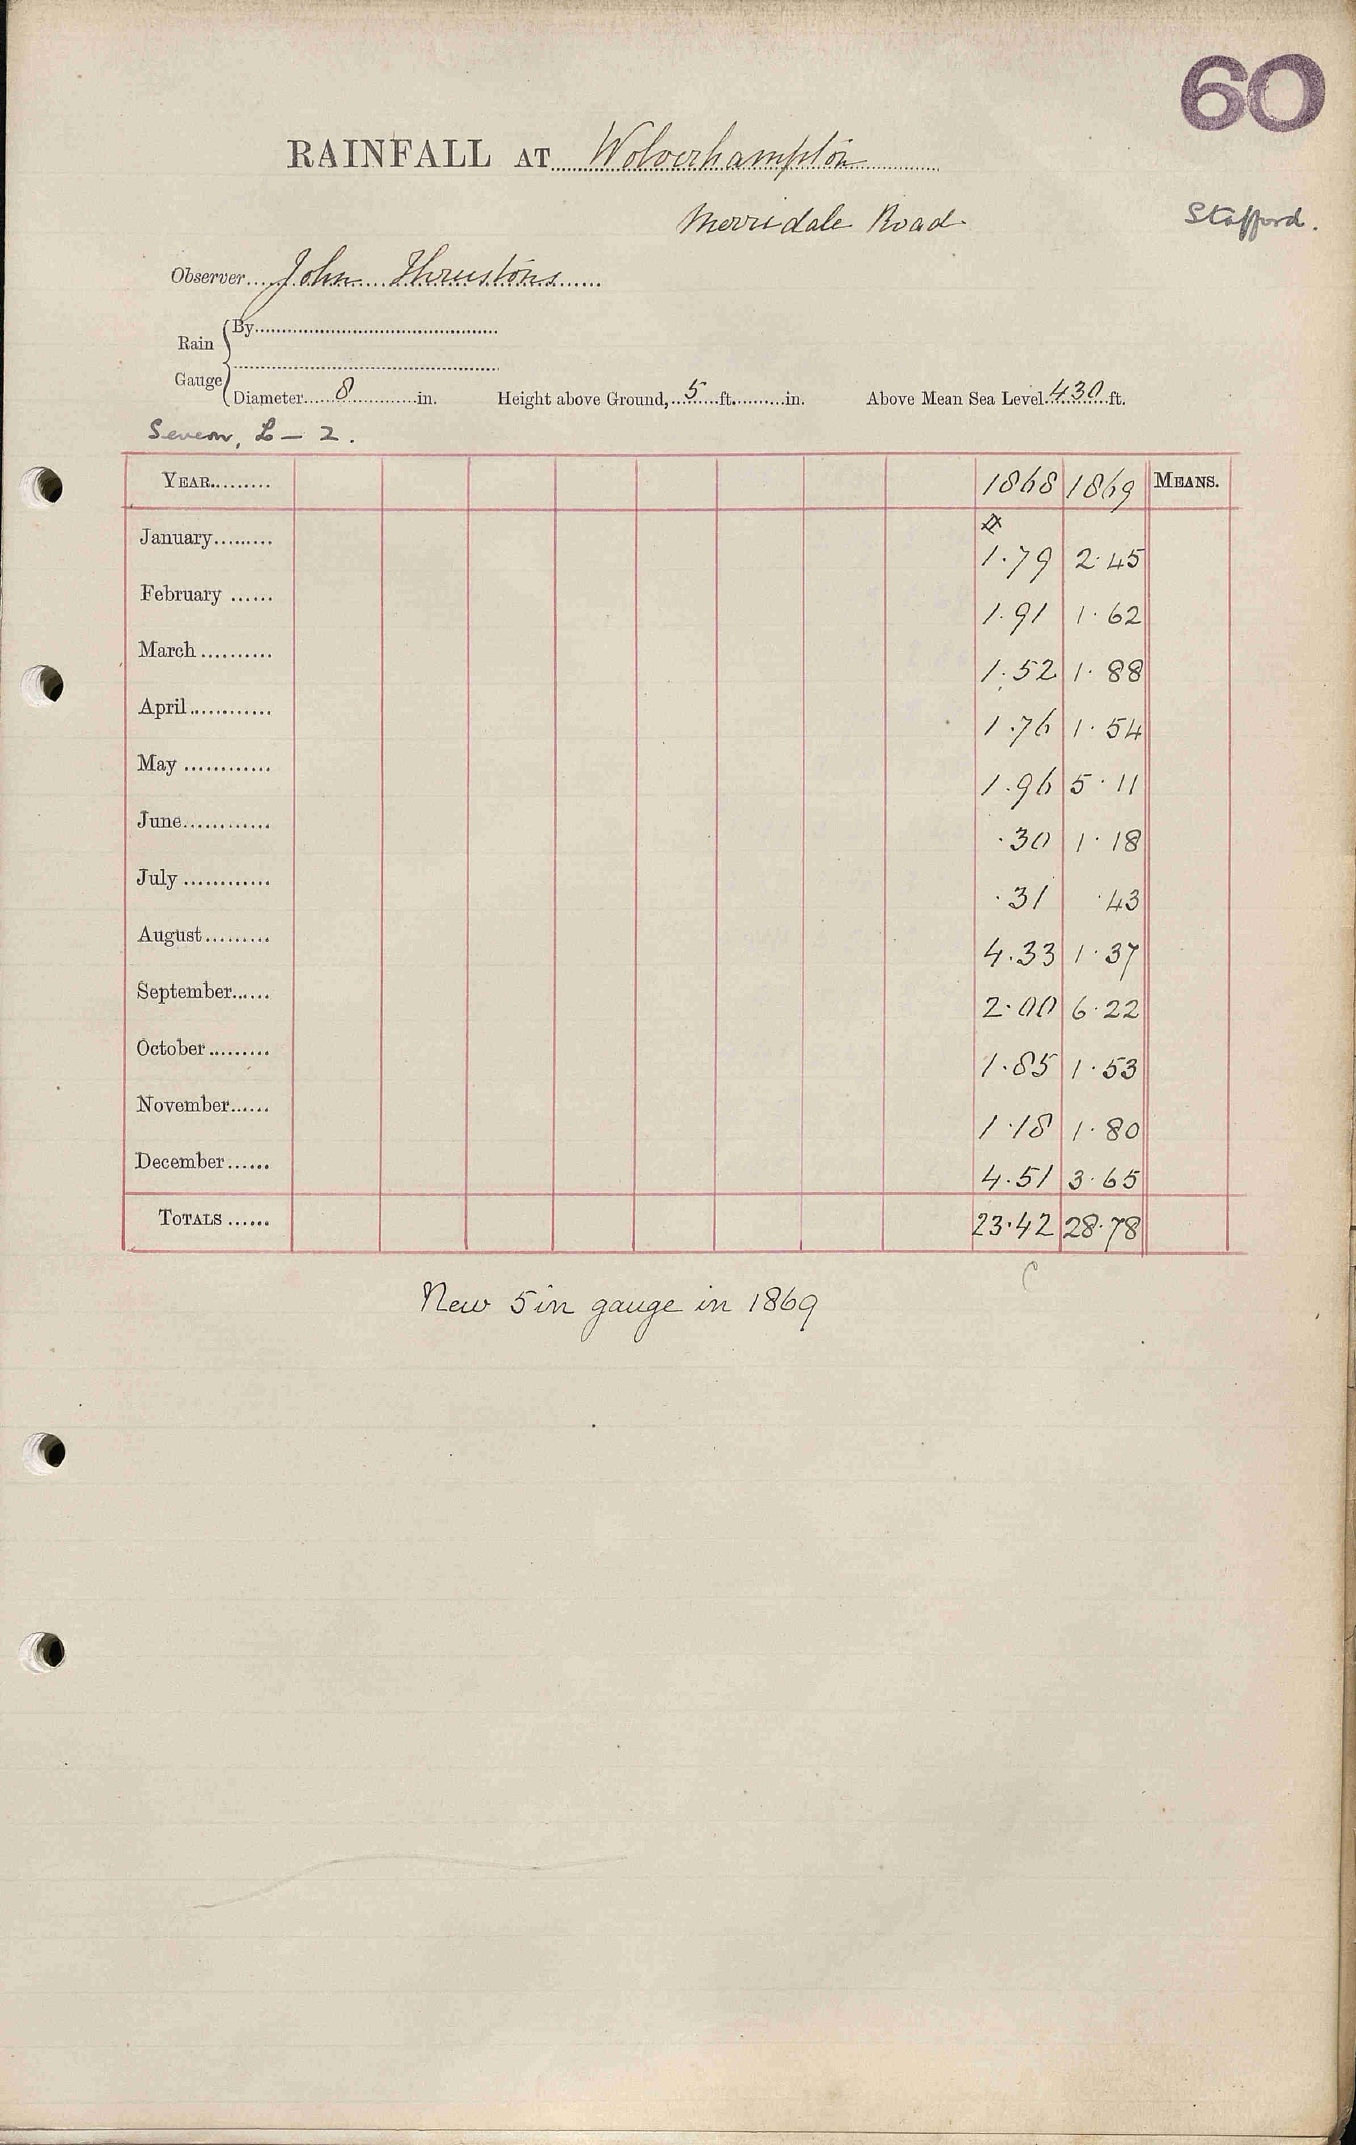 60
RAINFALL AT Wolverhampton
Merridale Road
Stafford.
Observer John Thrustons
Rain Gauge
By
Diameter 8 in. Height above Ground, 5 ft. in. Above Mean Sea Level 430 ft.
Severn, L - 2.
YEAR 1868 1869 MEANS.
January 1.79 2.45
February 1.91 1.62
March 1.52 1.88
April 1.76 1.54
May 1.96 5.11
June .30 1.18
July .31 .43
August 4.33 1.37
September 2.00 6.22
October 1.85 1.53
November 1.18 1.80
December 4.51 3.65
TOTALS 23.42 28.78
C
New 5in gauge in 1869